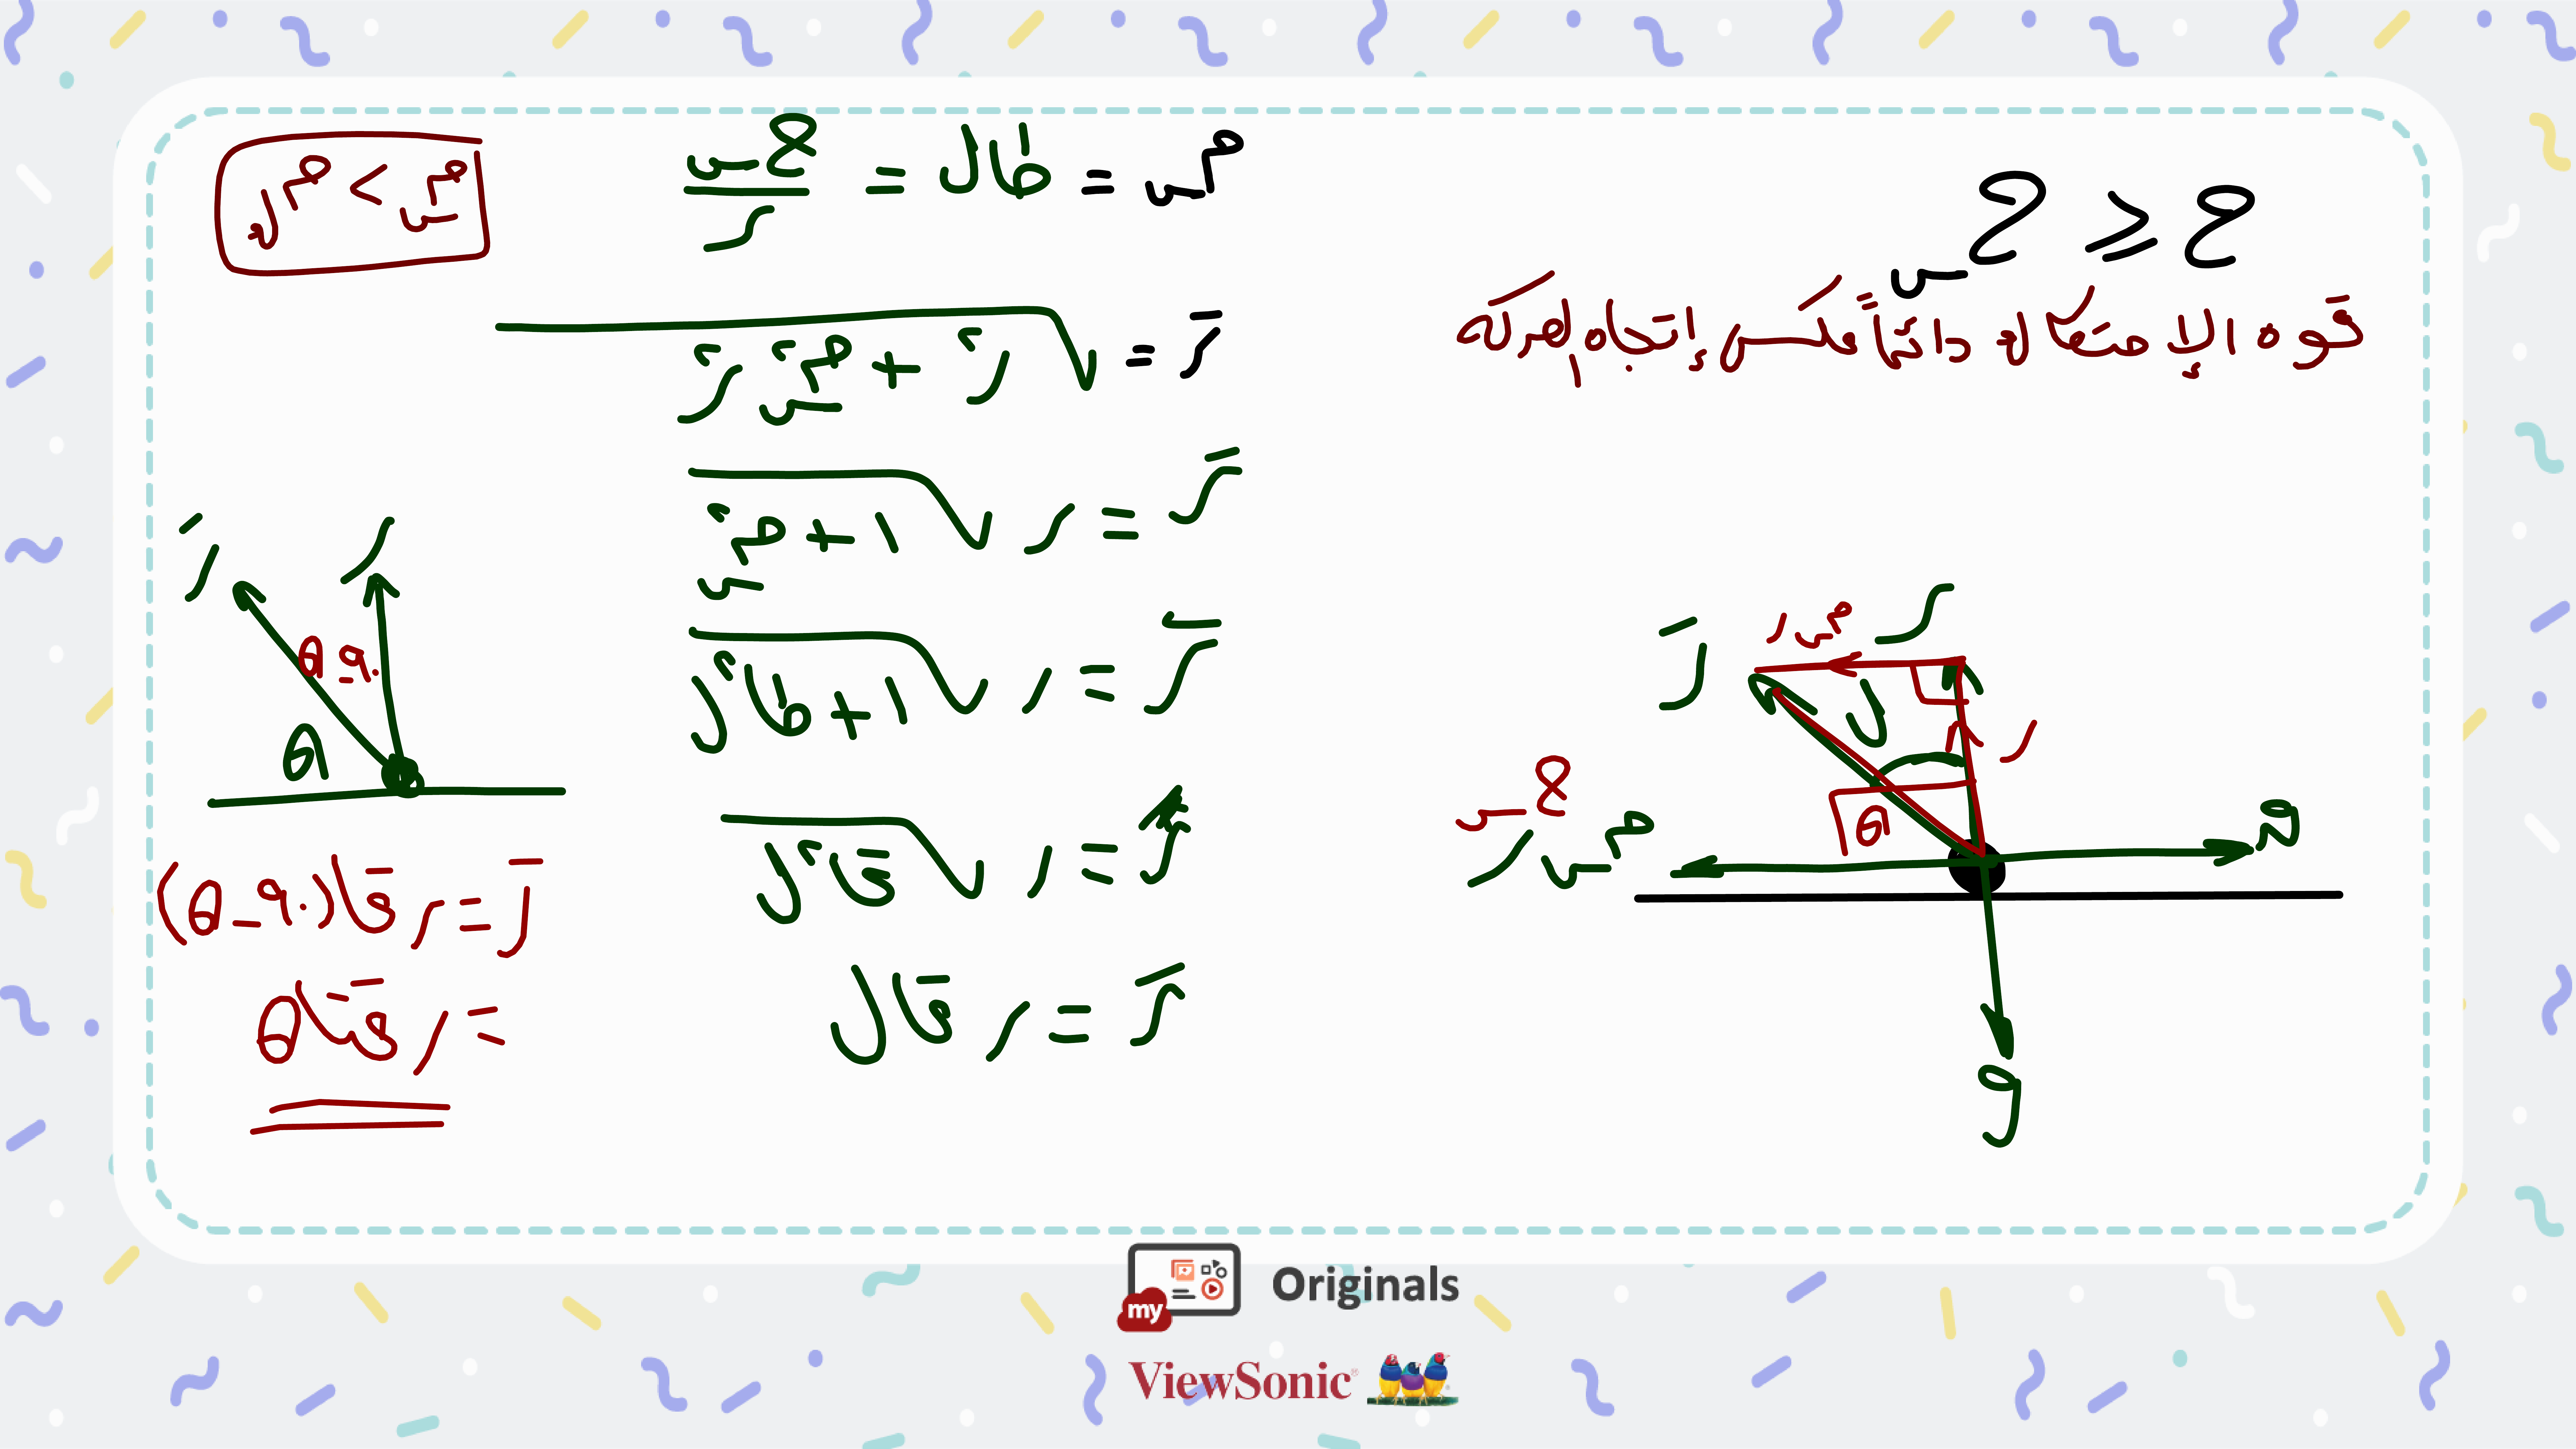 ح ≤ حس
قوه الإحتكاك دائماً عكس إتجاه الحركه
مس = طال = حس / ر
رَ = √(ر² + مس² ر²)
رَ = ر √(1 + مس²)
رَ = ر √(1 + طا²ل)
رَ = ر √(قا²ل)
رَ = ر قال
مس > مك
رَ
ر
θ
90
θ
رَ = ر قا(90 - θ)
= ر قتا θ
رَ
مس ر
ر
ل
ر
θ
حس
مس ر
ق
و
my Originals
ViewSonic